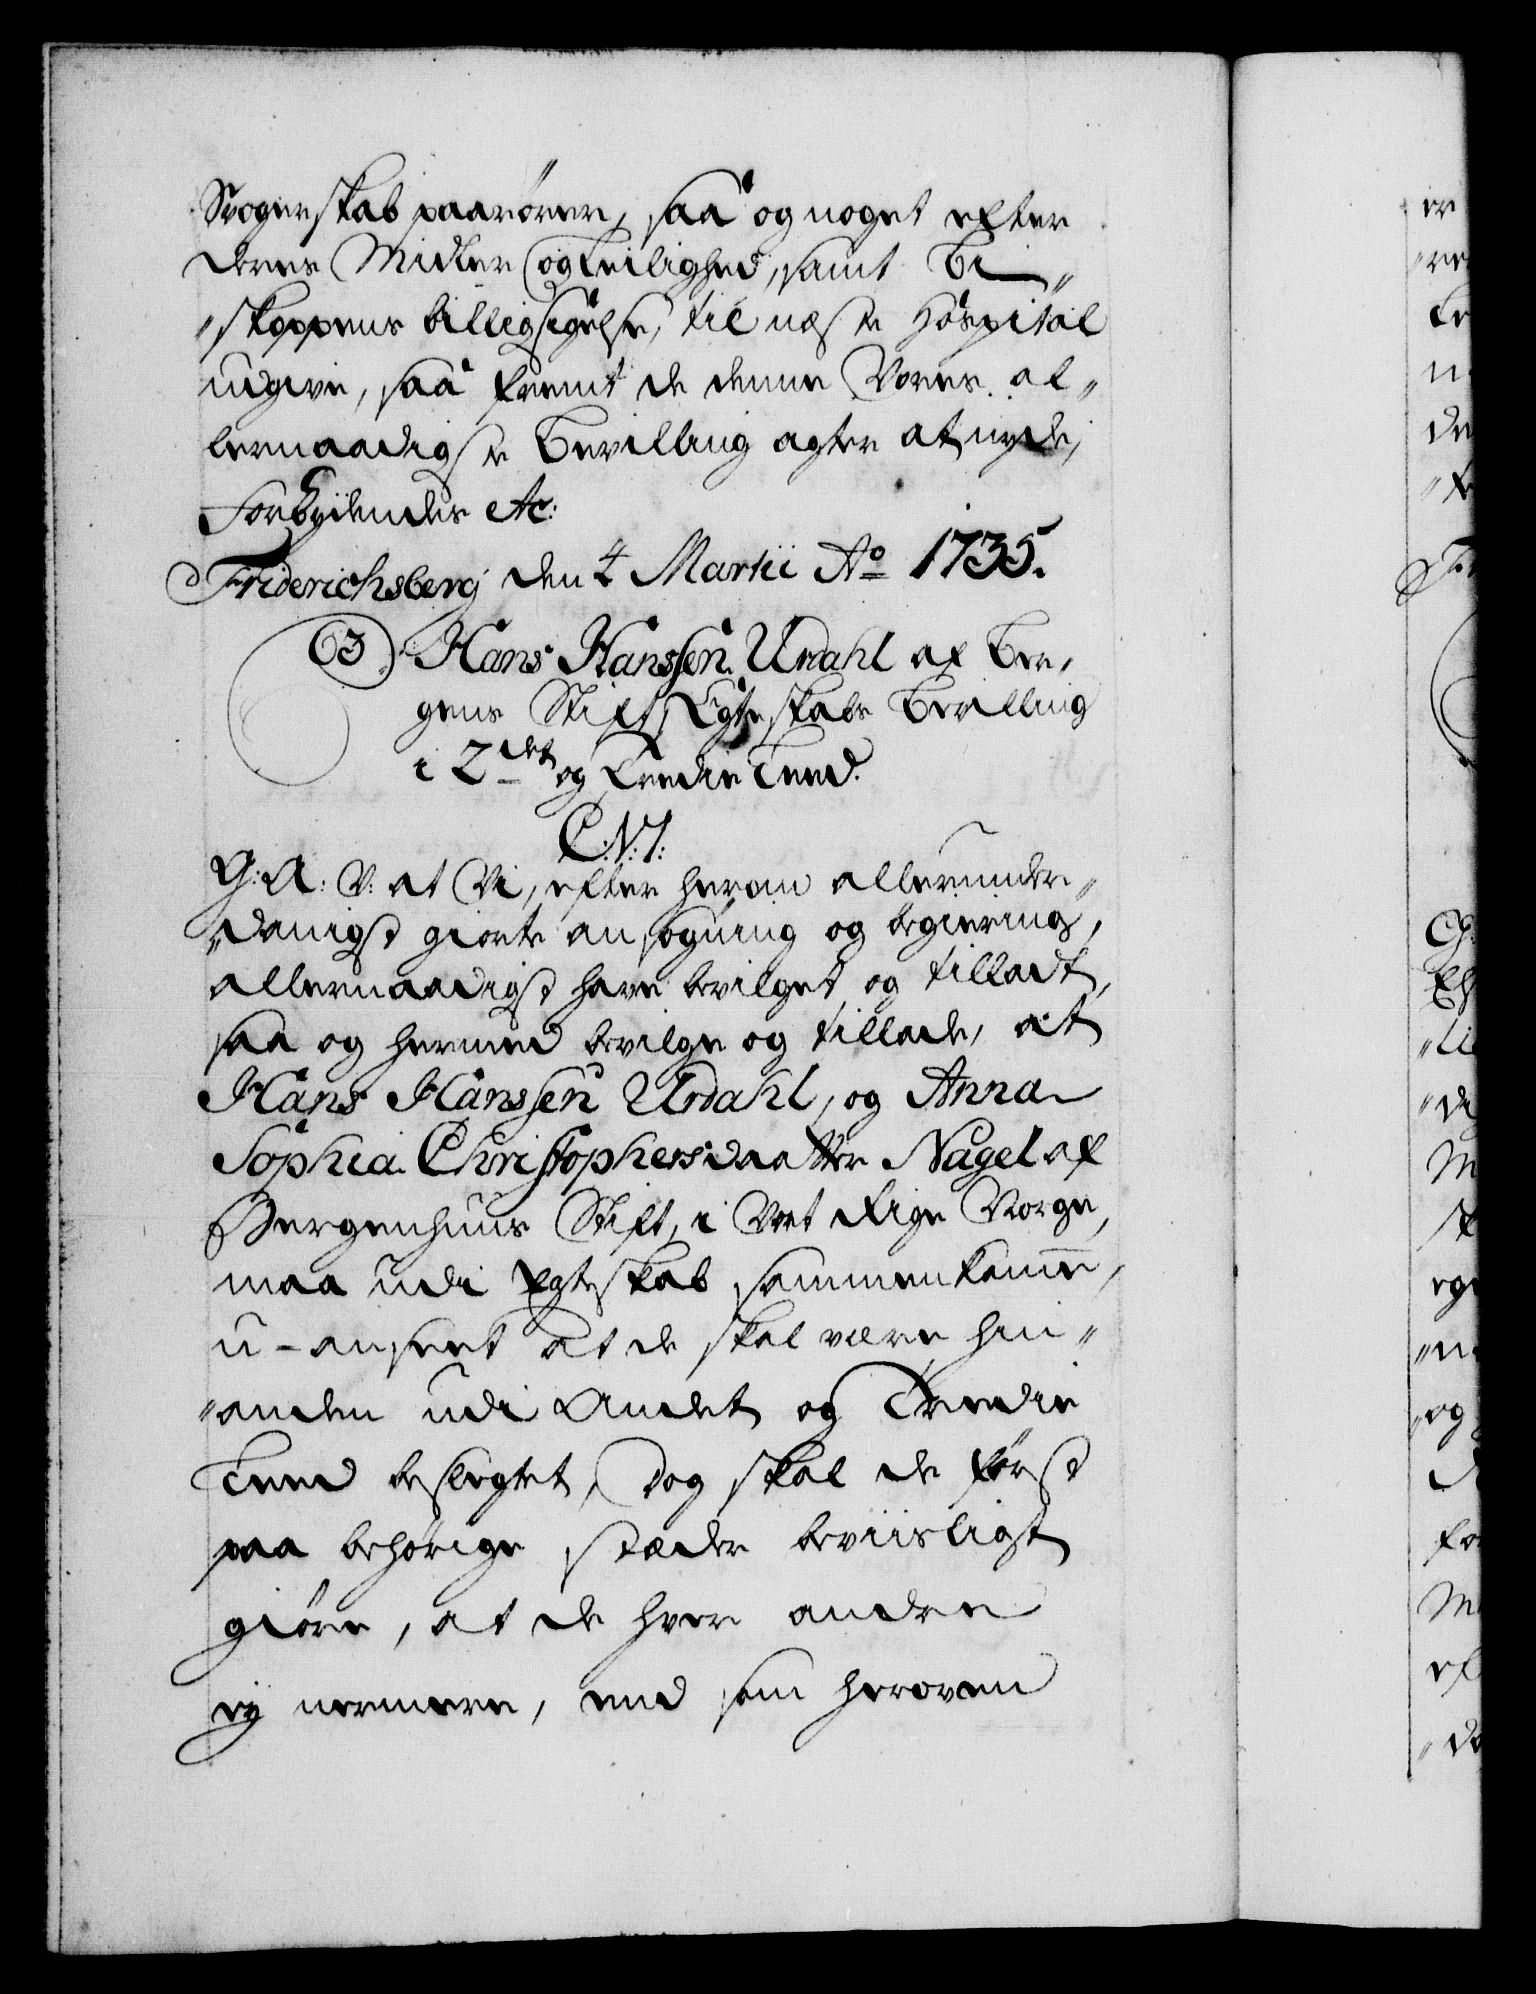 Svogerskab paarører, saa og noget efter
deres Midler og Leilighed, samt Bi„
„skoppens billigsigelse, til næste Hospital
udgive, saa fremt de denne Vores al„
lernaadigste Bevilling agter at nyde,
Forbydendes etc:
Friderichsberg den 4 Martii Ao 1735.
63. Hans Hanssen Urdahl af Ber„
gens Stift, Egteskabs Bevilling
i 2det og tredie Leed.
C:N:1:
G:A: V: at Vi, efter herom allerunder„
„danigst giorte ansøgning og begiering,
allernaadigst have bevilget og tilladt,
saa og hermed bevilge og tillade, at
Hans Hanssen Urdahl, og Anna
Sophia Christophersdaatter Nagel af
Bergenhuus Stift, i Vort Rige Norge,
maa udi Egteskab sammenkomme,
u-anseet at de skal være hin„
„anden udi Andet og Tredie
Leed beslegtet, Dog skal de først
paa behørige stæder beviisligt
giøre, at de hver andre
ey nermere, end som heroven